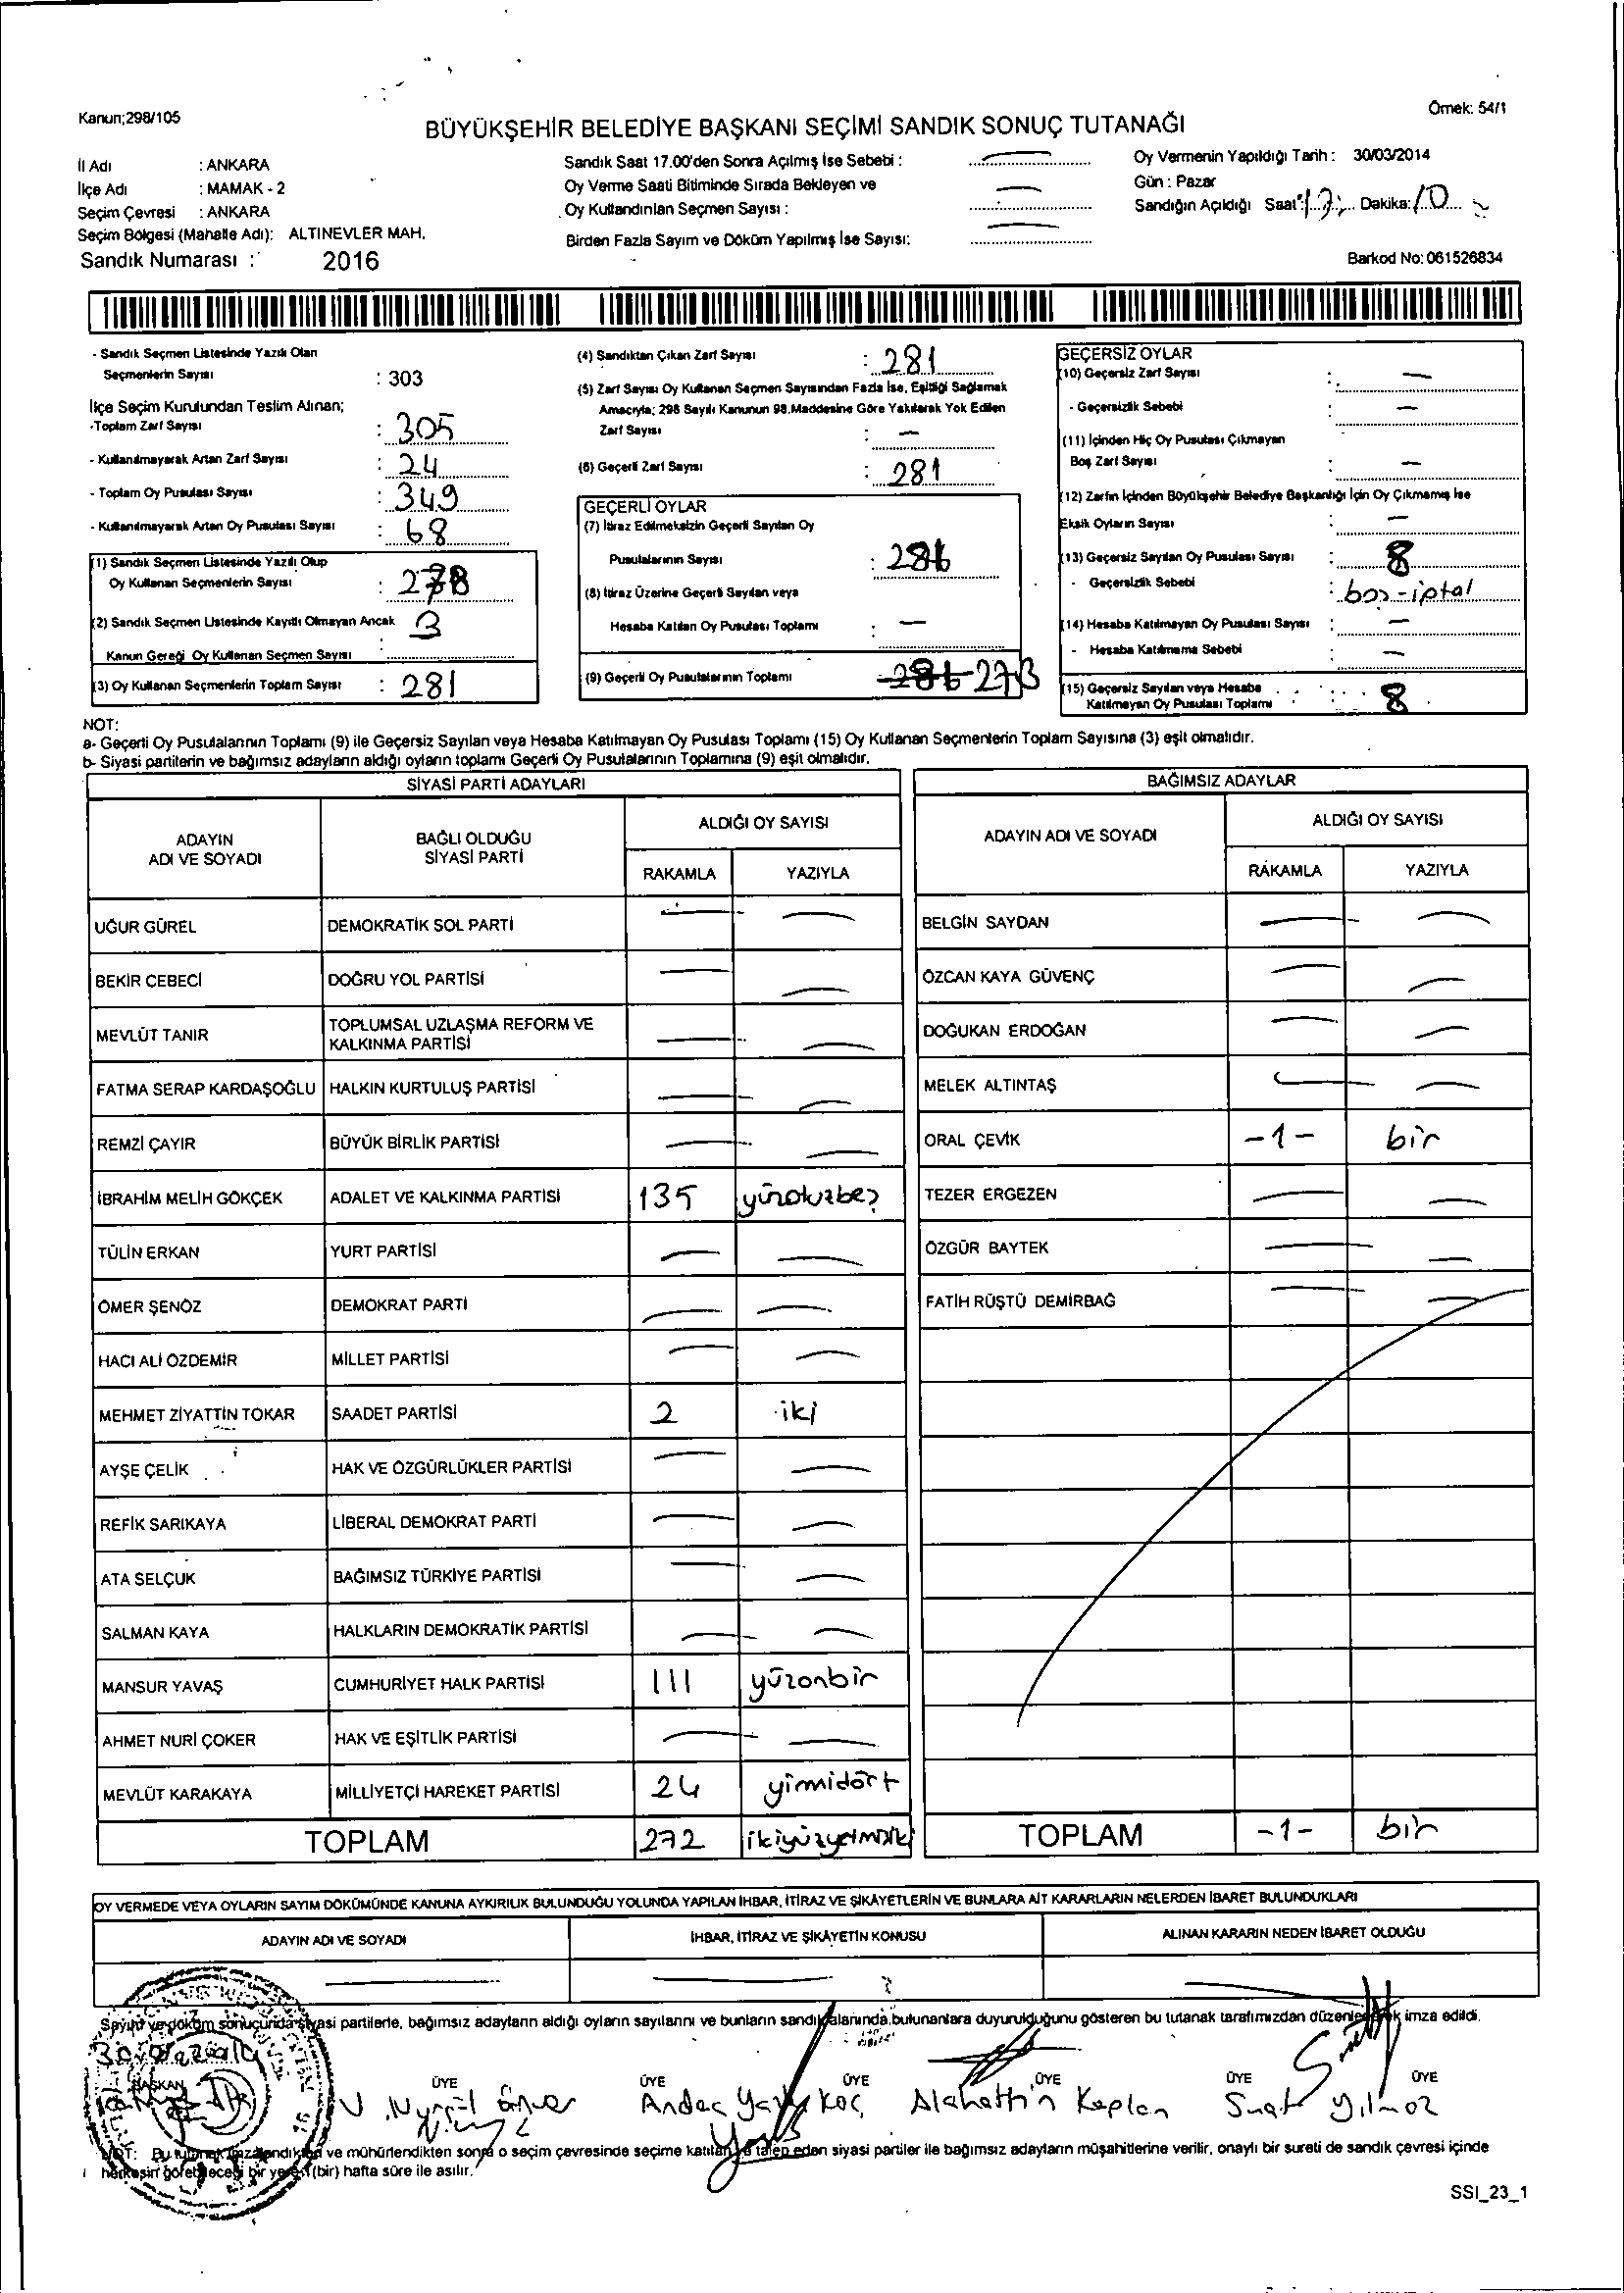 Kanun;298/105
Örnek: 54/1
BÜYÜKŞEHİR BELEDİYE BAŞKANI SEÇİMİ SANDIK SONUÇ TUTANAĞI
İl Adı : ANKARA
İlçe Adı : MAMAK - 2
Seçim Çevresi : ANKARA
Seçim Bölgesi (Mahalle Adı): ALTINEVLER MAH.
Sandık Numarası : 2016
Sandık Saat 17.00'den Sonra Açılmış İse Sebebi : —
Oy Verme Saati Bitiminde Sırada Bekleyen ve
Oy Kullandırılan Seçmen Sayısı : —
Birden Fazla Sayım ve Döküm Yapılmış İse Sayısı: —
Oy Vermenin Yapıldığı Tarih : 30/03/2014
Gün : Pazar
Sandığın Açıldığı Saat: 17 Dakika: 10
Barkod No: 061526834
- Sandık Seçmen Listesinde Yazılı Olan
Seçmenlerin Sayısı : 303
İlçe Seçim Kurulundan Teslim Alınan;
-Toplam Zarf Sayısı : 305
- Kullanılmayarak Artan Zarf Sayısı : 24
- Toplam Oy Pusulası Sayısı : 349
- Kullanılmayarak Artan Oy Pusulası Sayısı : 68
(1) Sandık Seçmen Listesinde Yazılı Olup
Oy Kullanan Seçmenlerin Sayısı : 278
(2) Sandık Seçmen Listesinde Kayıtlı Olmayan Ancak 3
Kanun Gereği Oy Kullanan Seçmen Sayısı :
(3) Oy Kullanan Seçmenlerin Toplam Sayısı : 281
(4) Sandıktan Çıkan Zarf Sayısı : 281
(5) Zarf Sayısı Oy Kullanan Seçmen Sayısından Fazla İse, Eşitliği Sağlamak
Amacıyla; 298 Sayılı Kanunun 98.Maddesine Göre Yakılarak Yok Edilen
Zarf Sayısı : —
(6) Geçerli Zarf Sayısı : 281
GEÇERLİ OYLAR
(7) İtiraz Edilmeksizin Geçerli Sayılan Oy
Pusulalarının Sayısı :
(8) İtiraz Üzerine Geçerli Sayılan veya
Hesaba Katılan Oy Pusulası Toplamı : —
(9) Geçerli Oy Pusulalarının Toplamı 273
GEÇERSİZ OYLAR
(10) Geçersiz Zarf Sayısı : —
- Geçersizlik Sebebi : —
(11) İçinden Hiç Oy Pusulası Çıkmayan
Boş Zarf Sayısı : —
(12) Zarfın İçinden Büyükşehir Belediye Başkanlığı İçin Oy Çıkmamış İse
Eksik Oyların Sayısı : —
(13) Geçersiz Sayılan Oy Pusulası Sayısı : 8
- Geçersizlik Sebebi : boş-iptal
(14) Hesaba Katılmayan Oy Pusulası Sayısı : —
- Hesaba Katılmama Sebebi : —
(15) Geçersiz Sayılan veya Hesaba
Katılmayan Oy Pusulası Toplamı : 8
NOT:
a- Geçerli Oy Pusulalarının Toplamı (9) ile Geçersiz Sayılan veya Hesaba Katılmayan Oy Pusulası Toplamı (15) Oy Kullanan Seçmenlerin Toplam Sayısına (3) eşit olmalıdır.
b- Siyasi partilerin ve bağımsız adayların aldığı oyların toplamı Geçerli Oy Pusulalarının Toplamına (9) eşit olmalıdır.
SİYASİ PARTİ ADAYLARI
ADAYIN ADI VE SOYADI
BAĞLI OLDUĞU SİYASİ PARTİ
ALDIĞI OY SAYISI
RAKAMLA YAZIYLA
UĞUR GÜREL DEMOKRATİK SOL PARTİ — —
BEKİR CEBECİ DOĞRU YOL PARTİSİ — —
MEVLÜT TANIR TOPLUMSAL UZLAŞMA REFORM VE KALKINMA PARTİSİ — —
FATMA SERAP KARDAŞOĞLU HALKIN KURTULUŞ PARTİSİ — —
REMZİ ÇAYIR BÜYÜK BİRLİK PARTİSİ — —
İBRAHİM MELİH GÖKÇEK ADALET VE KALKINMA PARTİSİ 135 yüzotuzbeş
TÜLİN ERKAN YURT PARTİSİ — —
ÖMER ŞENÖZ DEMOKRAT PARTİ — —
HACI ALİ ÖZDEMİR MİLLET PARTİSİ — —
MEHMET ZİYATTİN TOKAR SAADET PARTİSİ 2 iki
AYŞE ÇELİK HAK VE ÖZGÜRLÜKLER PARTİSİ — —
REFİK SARIKAYA LİBERAL DEMOKRAT PARTİ — —
ATA SELÇUK BAĞIMSIZ TÜRKİYE PARTİSİ — —
SALMAN KAYA HALKLARIN DEMOKRATİK PARTİSİ — —
MANSUR YAVAŞ CUMHURİYET HALK PARTİSİ 111 yüzonbir
AHMET NURİ ÇOKER HAK VE EŞİTLİK PARTİSİ — —
MEVLÜT KARAKAYA MİLLİYETÇİ HAREKET PARTİSİ 24 yirmidört
TOPLAM 272 ikiyüzyetmişiki
BAĞIMSIZ ADAYLAR
ADAYIN ADI VE SOYADI
ALDIĞI OY SAYISI
RAKAMLA YAZIYLA
BELGİN SAYDAN — —
ÖZCAN KAYA GÜVENÇ — —
DOĞUKAN ERDOĞAN — —
MELEK ALTINTAŞ — —
ORAL ÇEVİK -1- bir
TEZER ERGEZEN — —
ÖZGÜR BAYTEK — —
FATİH RÜŞTÜ DEMİRBAĞ — —
TOPLAM -1- bir
OY VERMEDE VEYA OYLARIN SAYIM DÖKÜMÜNDE KANUNA AYKIRILIK BULUNDUĞU YOLUNDA YAPILAN İHBAR, İTİRAZ VE ŞİKÂYETLERİN VE BUNLARA AİT KARARLARIN NELERDEN İBARET BULUNDUKLARI
ADAYIN ADI VE SOYADI İHBAR, İTİRAZ VE ŞİKÂYETİN KONUSU ALINAN KARARIN NEDEN İBARET OLDUĞU
— — —
Sayım ve döküm sonucunda siyasi partilerle, bağımsız adayların aldığı oyların sayılarını ve bunların sandık alanında bulunanlara duyurulduğunu gösteren bu tutanak tarafımızdan düzenlenerek imza edildi.
BAŞKAN ÜYE ÜYE ÜYE ÜYE ÜYE ÜYE
Alahattin Kaplan Suat Yılmaz
NOT: Bu tutanak imzalandıktan ve mühürlendikten sonra o seçim çevresinde seçime katılan ve talep eden siyasi partiler ile bağımsız adayların müşahitlerine verilir, onaylı bir sureti de sandık çevresi içinde
herkesin görebileceği bir yere 1 (bir) hafta süre ile asılır.
SSI_23_1